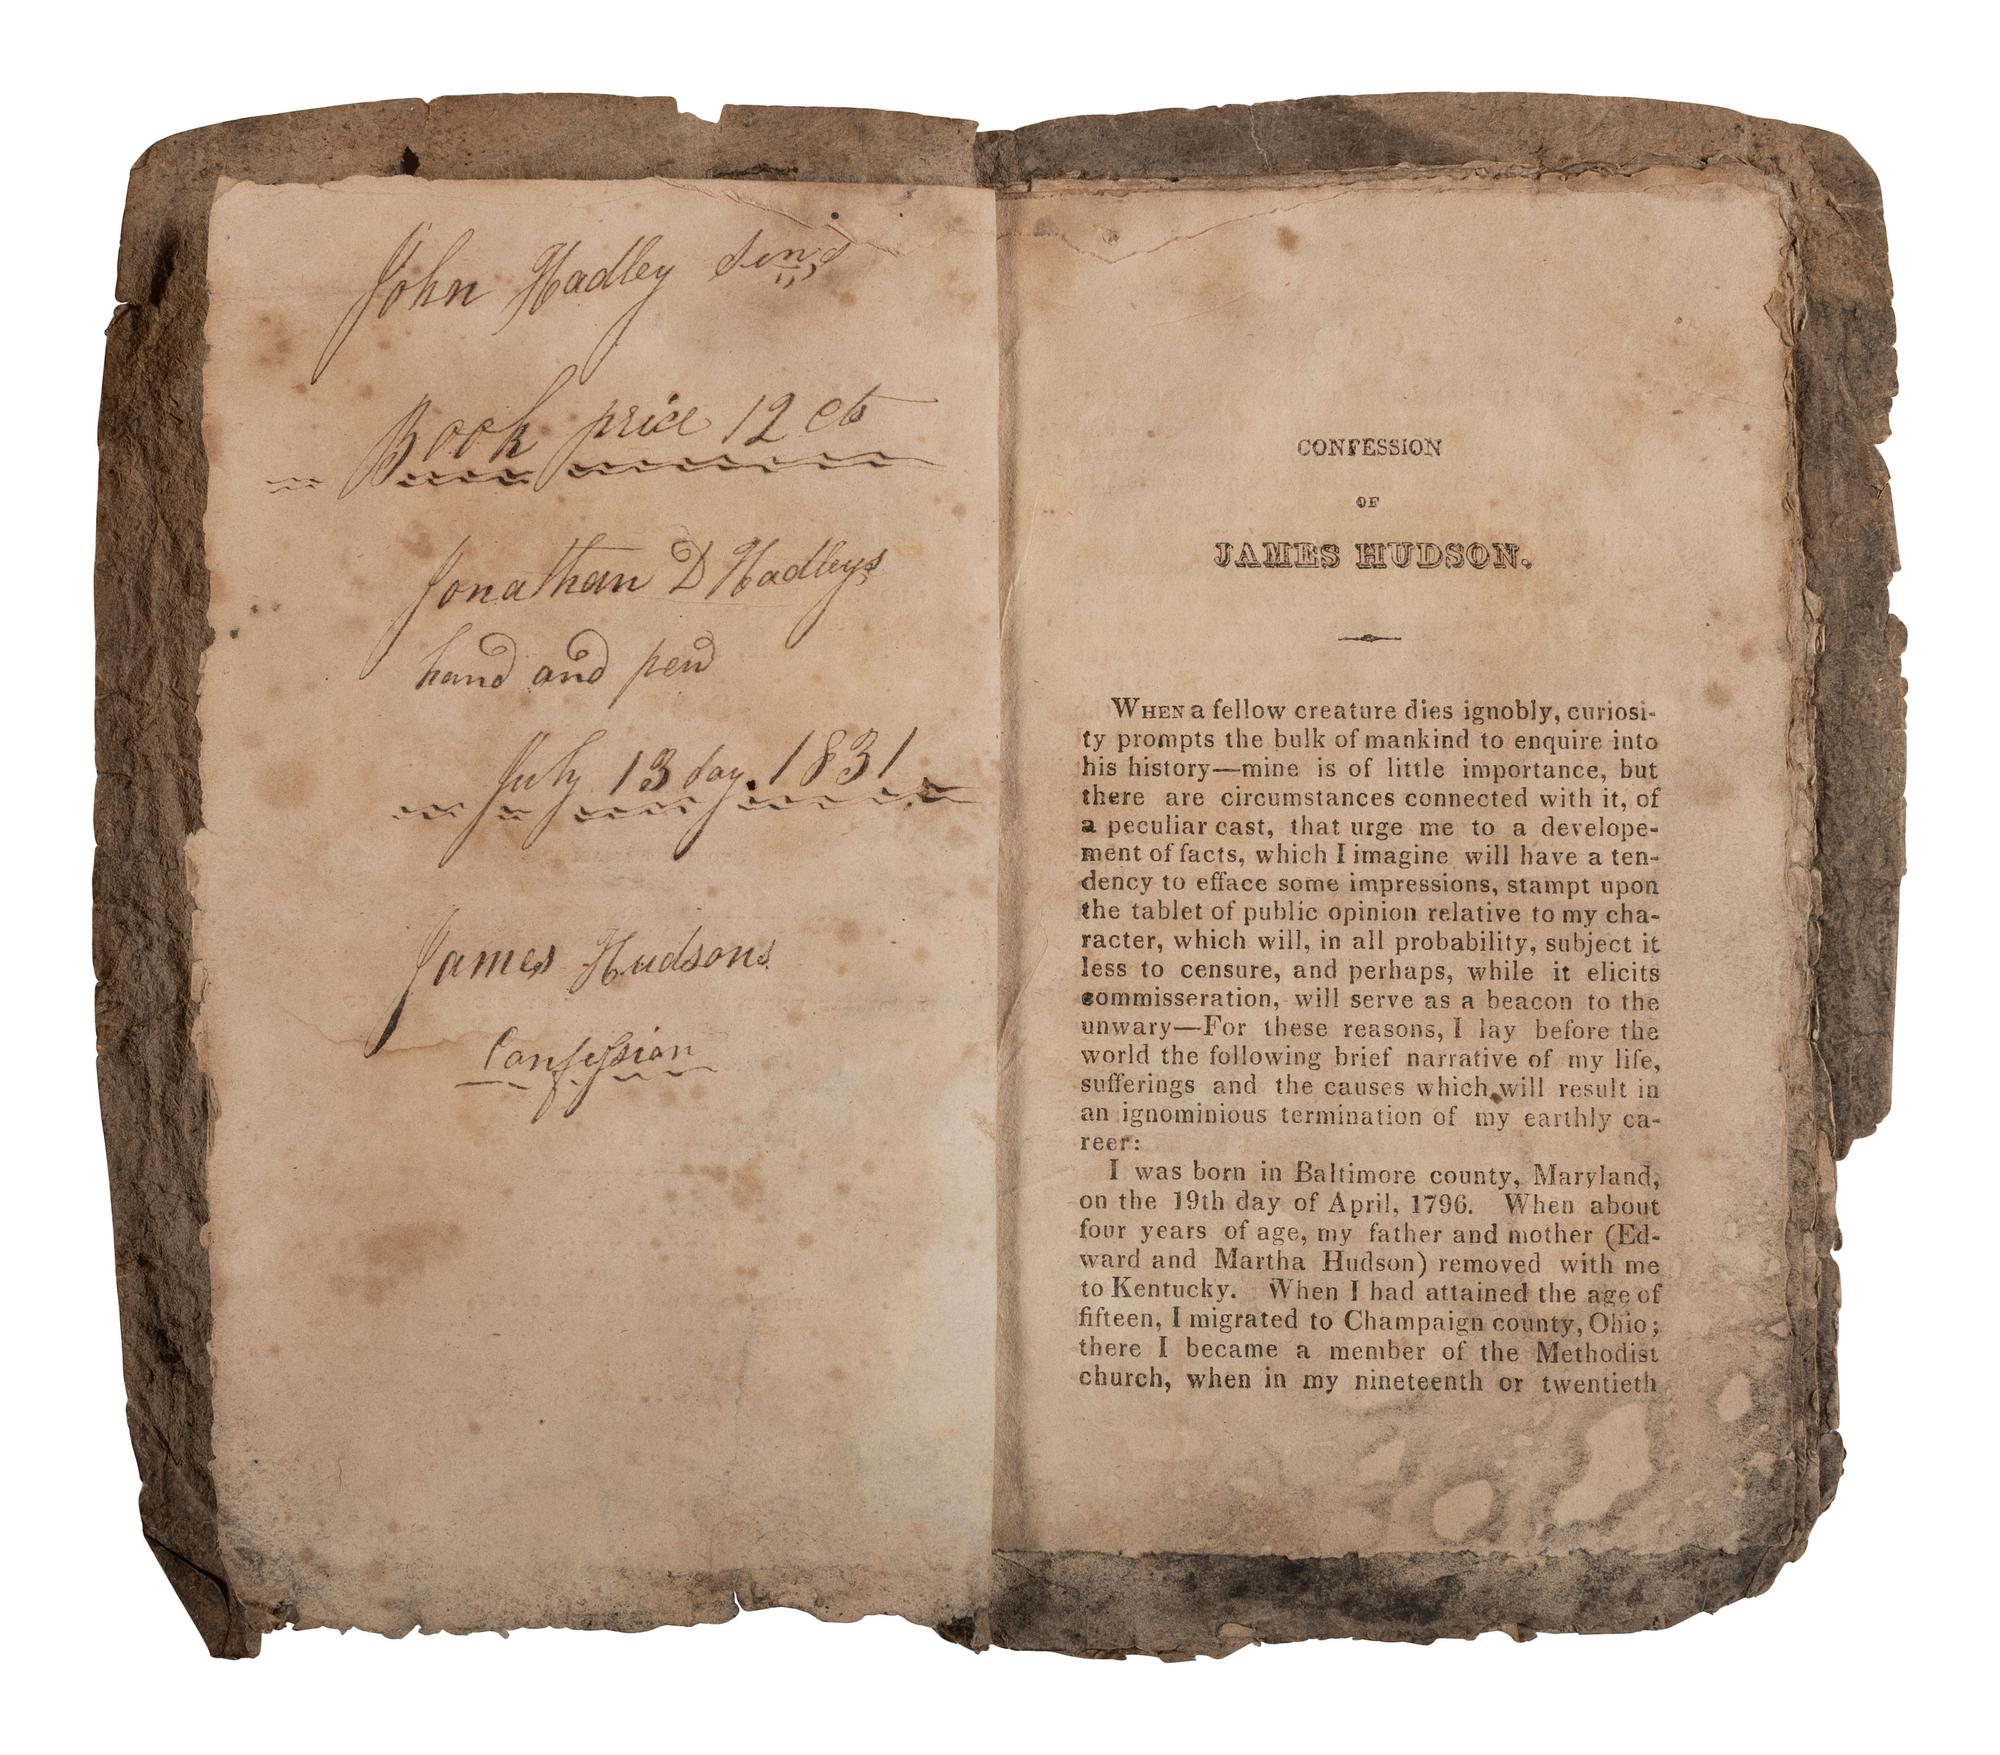 John Hadley Senr,s
Book price 12 cts
Jonathan D Hadleys
hand and pen
July 13 day. 1831
James Hudsons
Confession
CONFESSION
OF
JAMES HUDSON.
WHEN a fellow creature dies ignobly, curiosi-
ty prompts the bulk of mankind to enquire into
his history—mine is of little importance, but
there are circumstances connected with it, of
a peculiar cast, that urge me to a develope-
ment of facts, which I imagine will have a ten-
dency to efface some impressions, stampt upon
the tablet of public opinion relative to my cha-
racter, which will, in all probability, subject it
less to censure, and perhaps, while it elicits
commisseration, will serve as a beacon to the
unwary—For these reasons, I lay before the
world the following brief narrative of my life,
sufferings and the causes which will result in
an ignominious termination of my earthly ca-
reer:
I was born in Baltimore county, Maryland,
on the 19th day of April, 1796. When about
four years of age, my father and mother (Ed-
ward and Martha Hudson) removed with me
to Kentucky. When I had attained the age of
fifteen, I migrated to Champaign county, Ohio;
there I became a member of the Methodist
church, when in my nineteenth or twentieth